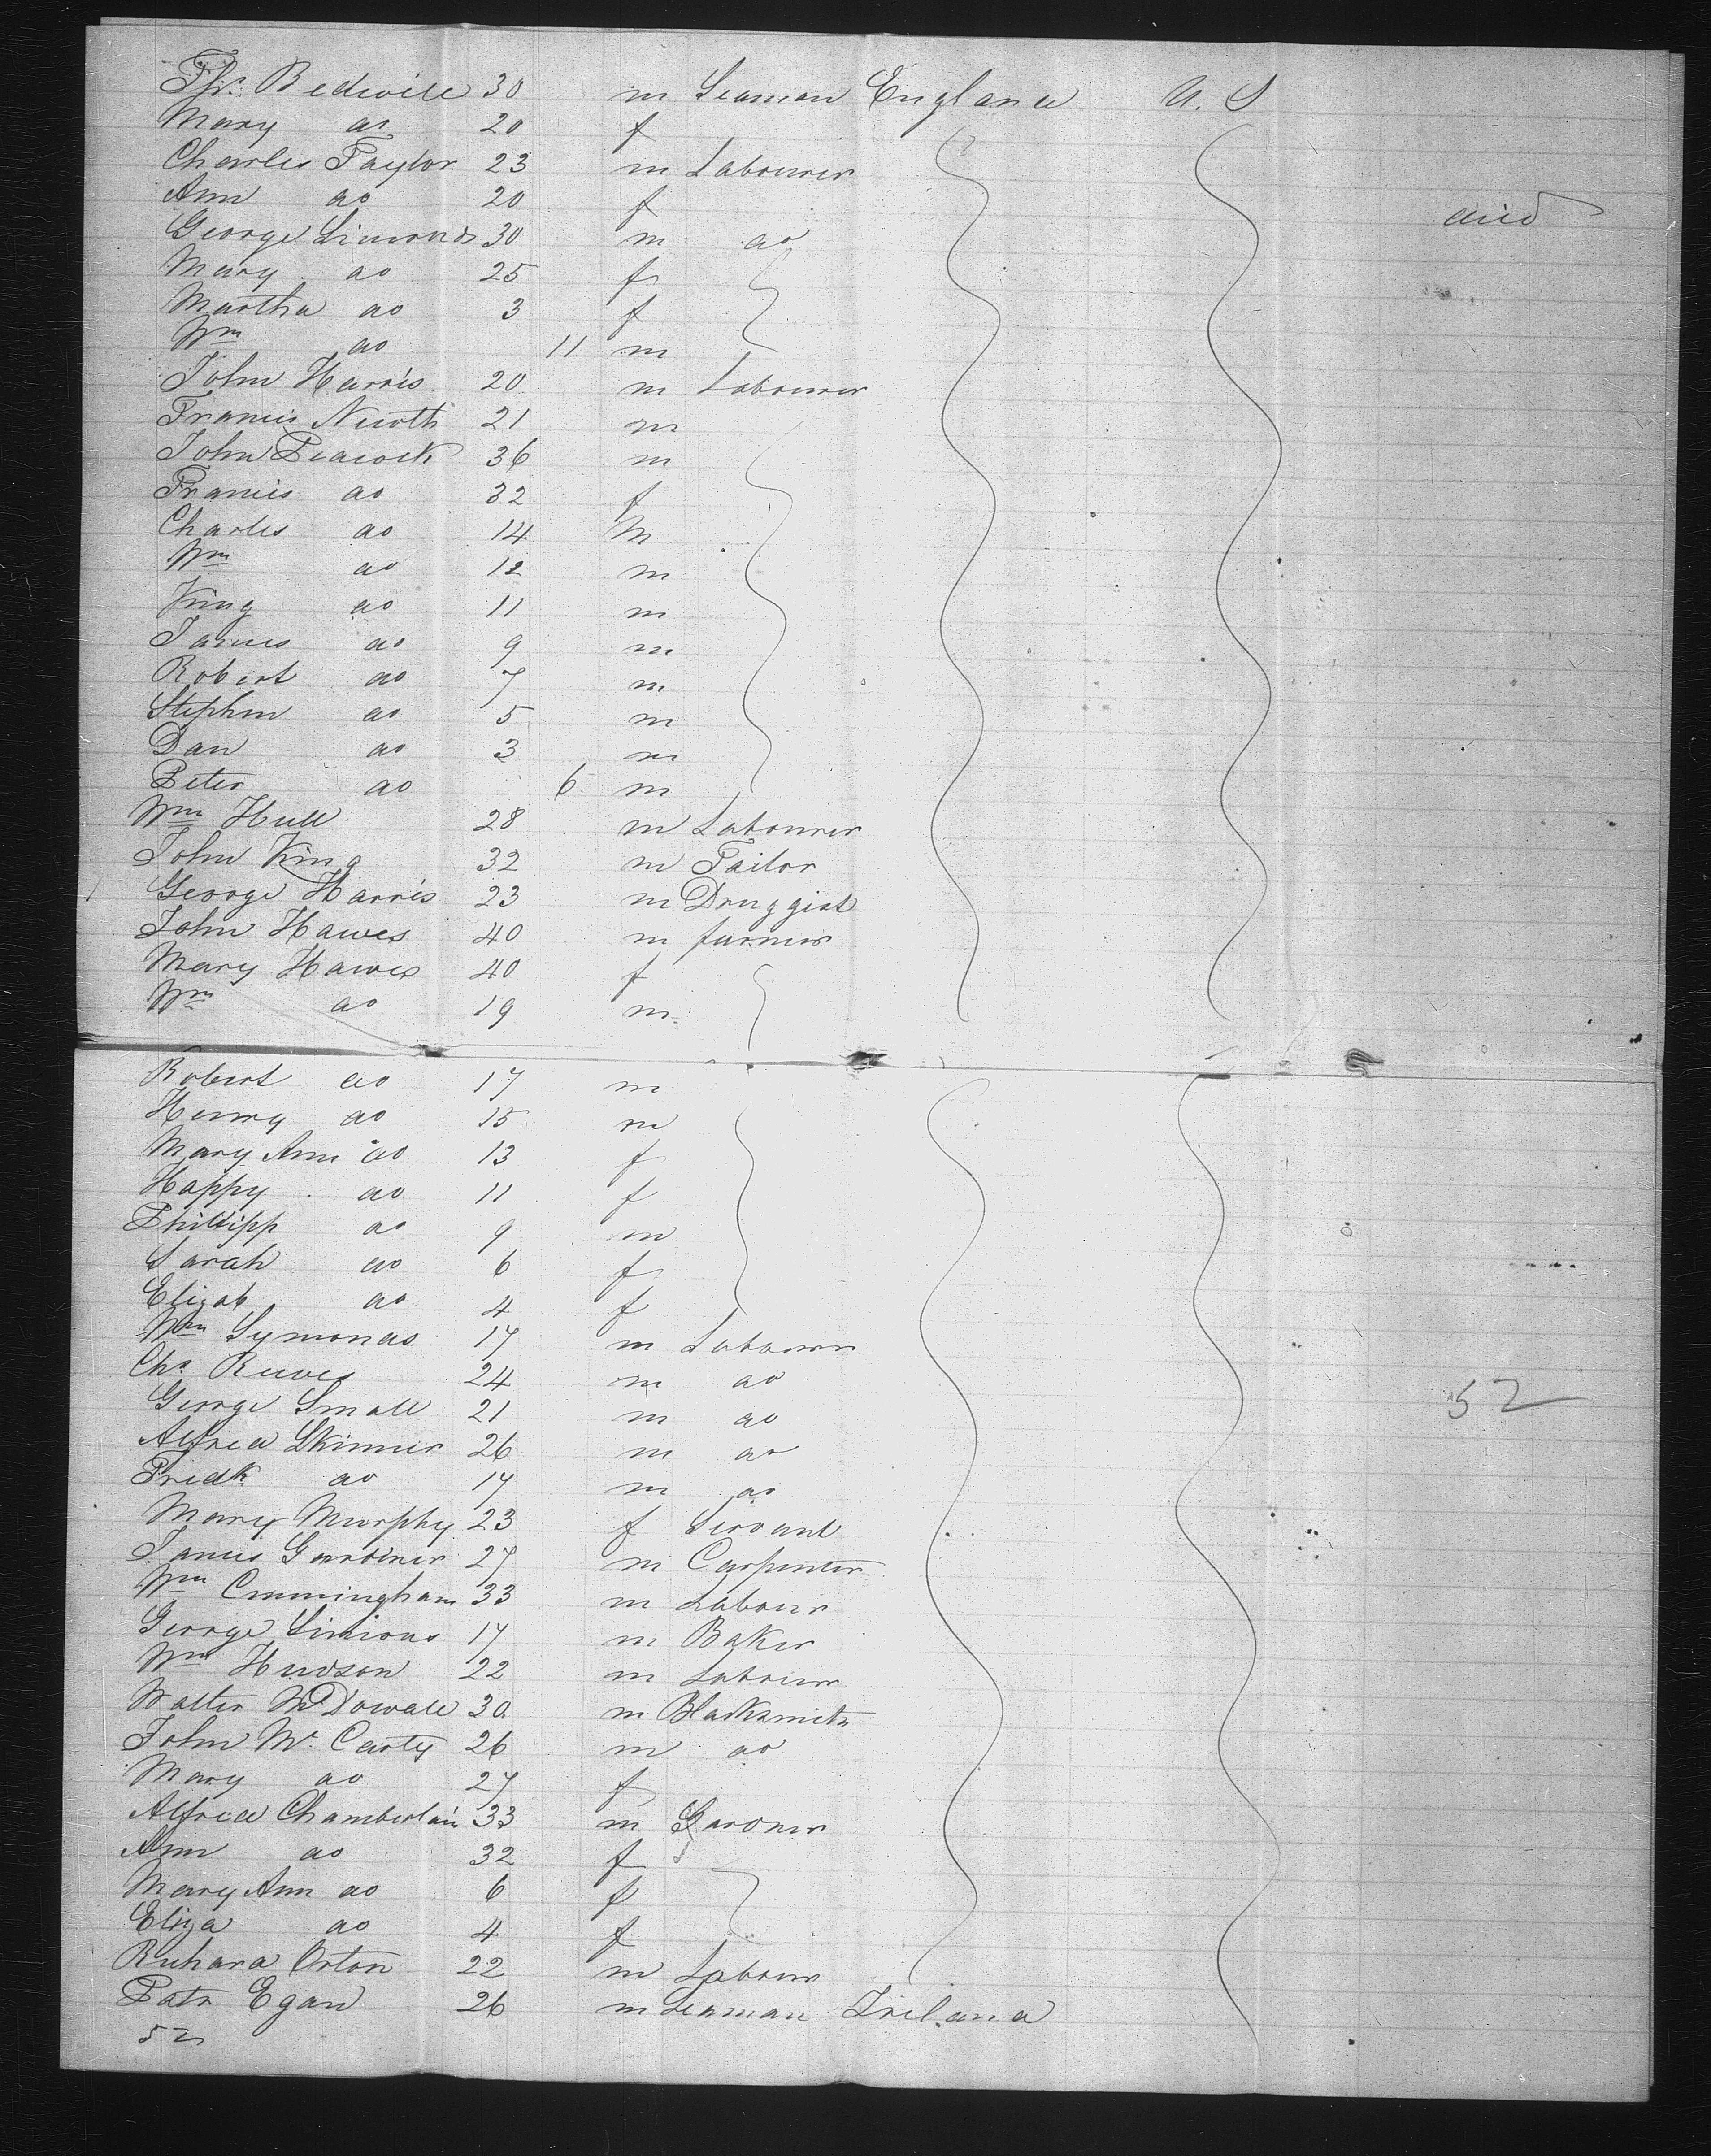 Ths. Bedwill 30 m Seaman England U. S
Mary do 20 f
Charles Taylor 23 m Labourer
Ann do 20 f
died
George Simonds 30 m do
Mary do 25 f
Martha do 3 f
Wm do 11 m
John Harris 20 m Labourer
Francis Newth 21 m
John Peacock 36 m
Francis do 32 f
Charles do 14 M
Wm do 12 m
King do 11 m
James do 9 m
Robert do 7 m
Stephen do 5 m
Dan do 3 m
Peter do 6 m
Wm Hull 28 m Labourer
John King 32 m Tailor
George Harris 23 m Druggist
John Hawes 40 m farmer
Mary Hawes 40 f
Wm do 19 m
Robert do 17 m
Henry do 15 m
Mary Ann do 13 f
Happy do 11 f
Phillipp do 9 m
Sarah do 6 f
Elizab do 4 f
Wm Symonds 17 m Labourer
Chs Reeves 24 m do
George Small 21 m do
52
Alfred Skinner 26 m do
Fredk do 17 m do
Mary Murphy 23 f Servant
James Gardiner 27 m Carpenter
Wm Cunningham 33 m Labour
George Simions 17 m Baker
Wm Hudson 22 m Labour
Walter McDowall 30 m Blacksmith
John Mc Carty 26 m do
Mary do 27 f
Alfred Chamberlain 33 m Gardner
Ann do 32 f
Mary Ann do 6 f
Eliza do 4 f
Richard Orton 22 m Labour
Patr Egan 26 m Seaman Ireland
52